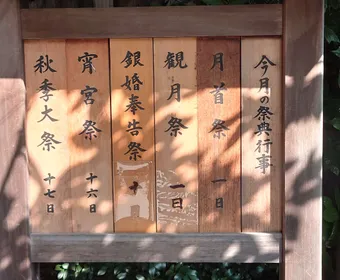 今月の祭典行事
月首祭 一日
観月祭 一日
銀婚奉告祭 十
宵宮祭 十六日
秋季大祭 十七日